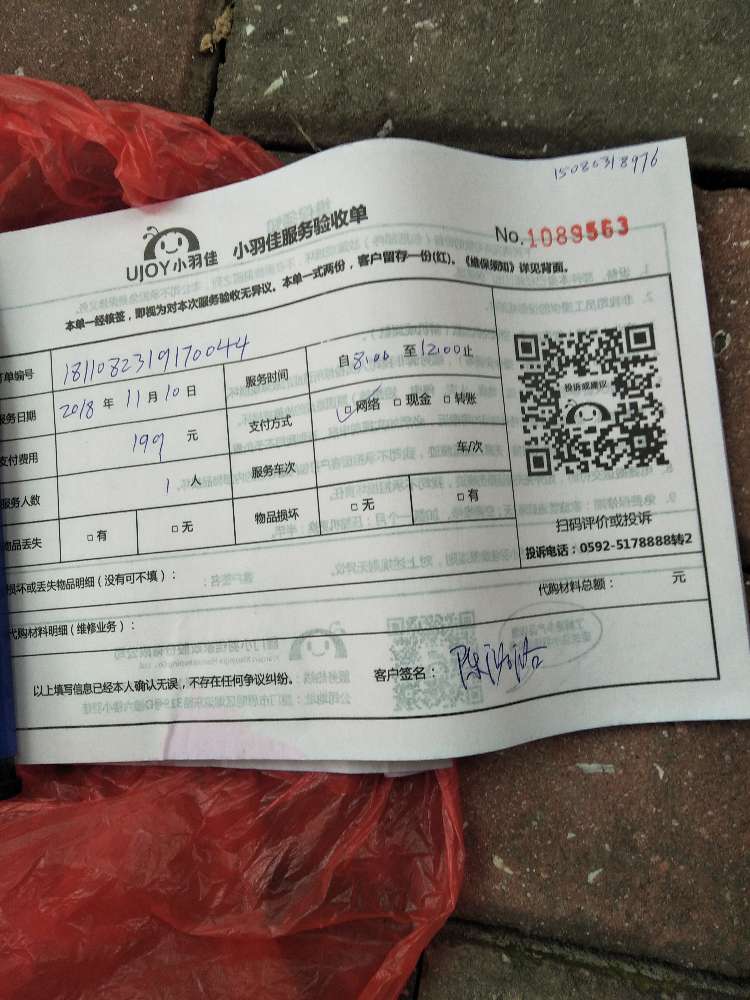 15080318976
UJOY小羽佳 小羽佳服务验收单 No.1089563
本单一经核签，即视为对本次服务验收无异议。本单一式两份，客户留存一份(红)。《维保须知》详见背面。
订单编号 1811082319170044 服务时间 自8:00 至12:00止
服务日期 2018 年 11 月 10 日 支付方式 □网络 □现金 □转账
支付费用 199 元 服务车次 车/次
服务人数 1 人 物品损坏 □无 □有
物品丢失 □有 □无
投诉或建议
扫码评价或投诉
投诉电话：0592-5178888转2
损坏或丢失物品明细（没有可不填）：
代购材料总额： 元
代购材料明细（维修业务）：
以上填写信息已经本人确认无误，不存在任何争议纠纷。 客户签名：